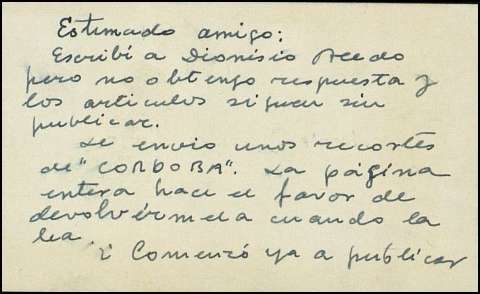 Estimado amigo:
Escribí a Dionisio Acedo
pero no obtengo respuesta y
los articulos siguen sin
publicar.
Le envio unos recortes
de "CORDOBA". La página
entera hace el favor de
devolvérmela cuando la
lea.
¿ Comenzó ya a publicar